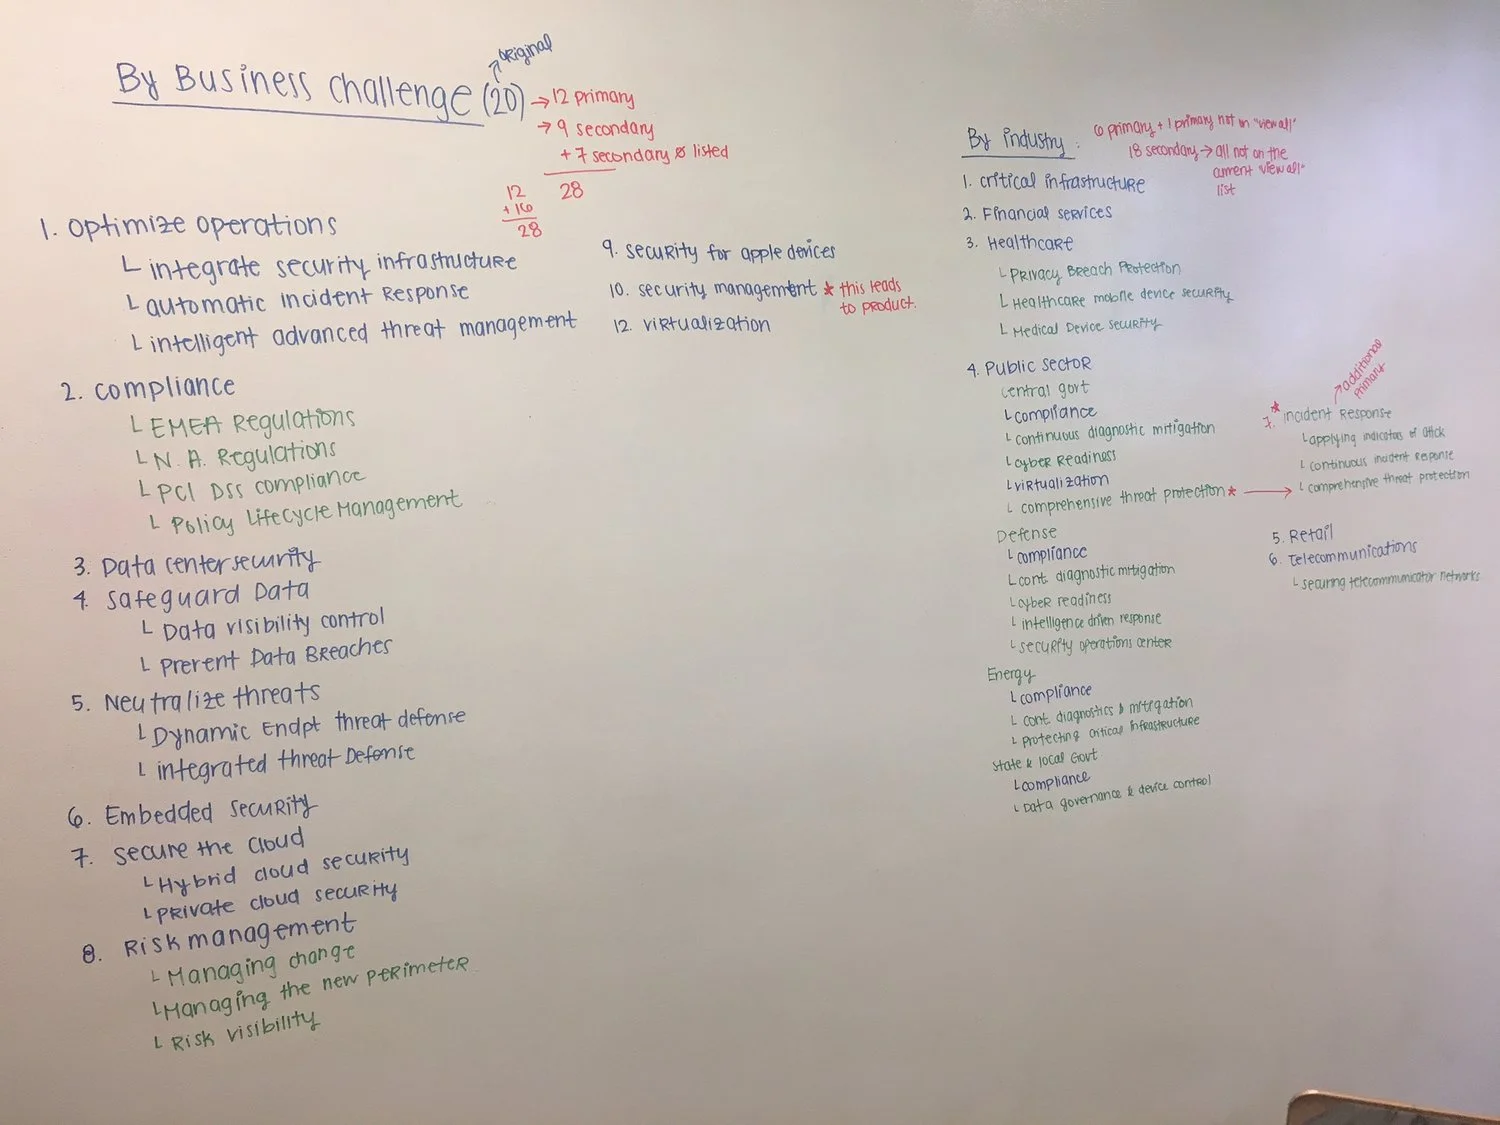 By Business Challenge (20)
↗ original
→ 12 primary
→ 9 secondary
+ 7 secondary ø listed
28
12
+ 16
28
1. Optimize Operations
└ integrate security infrastructure
└ automatic incident Response
└ intelligent advanced threat management
2. Compliance
└ EMEA Regulations
└ N. A. Regulations
└ PCI DSS compliance
└ Policy Lifecycle Management
3. Data center security
4. Safeguard Data
└ Data visibility control
└ Prevent Data Breaches
5. Neutralize threats
└ Dynamic Endpt threat defense
└ integrated threat Defense
6. Embedded Security
7. Secure the Cloud
└ Hybrid cloud security
└ Private cloud security
8. Risk management
└ Managing change
└ Managing the new perimeter
└ Risk visibility
9. security for apple devices
10. security management * this leads
to product.
12. virtualization
By industry:
6 primary + 1 primary not on "view all"
18 secondary → all not on the
current "view all"
list
1. critical infrastructure
2. Financial services
3. Healthcare
└ Privacy Breach Protection
└ Healthcare mobile device security
└ Medical Device security
4. Public sector
central govt
└ compliance
└ continuous diagnostic mitigation
└ cyber Readiness
└ virtualization
└ comprehensive threat protection *
Defense
└ compliance
└ cont diagnostic mitigation
└ cyber readiness
└ intelligence driven response
└ security operations center
Energy
└ compliance
└ cont diagnostics & mitigation
└ protecting critical infrastructure
State & local Govt
└ compliance
└ Data governance & device control
↗ additional
primary
7.* incident Response
└ applying indicators of attck
└ continuous incident response
→ └ comprehensive threat protection
5. Retail
6. Telecommunications
└ securing telecommunicator networks